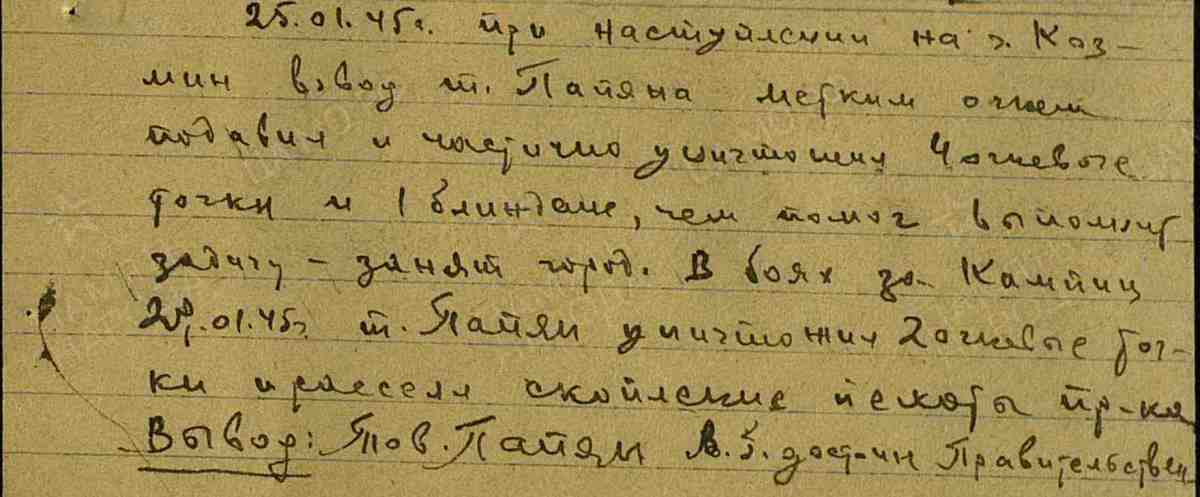 25.01.45г. при наступлении на г. Коз-
мин взвод т. Папяна метким огнем
подавил и частично уничтожил 4 огневые
точки и 1 блиндаж, чем помог выполнит
задачу – занят город. В боях за Кампиц
29.01.45г. т. Папян уничтожил 2 огневые точ-
ки и рассеял скопление пехоты пр-ка
Вывод: Тов. Папян А.Б. дост-ин Правительствен